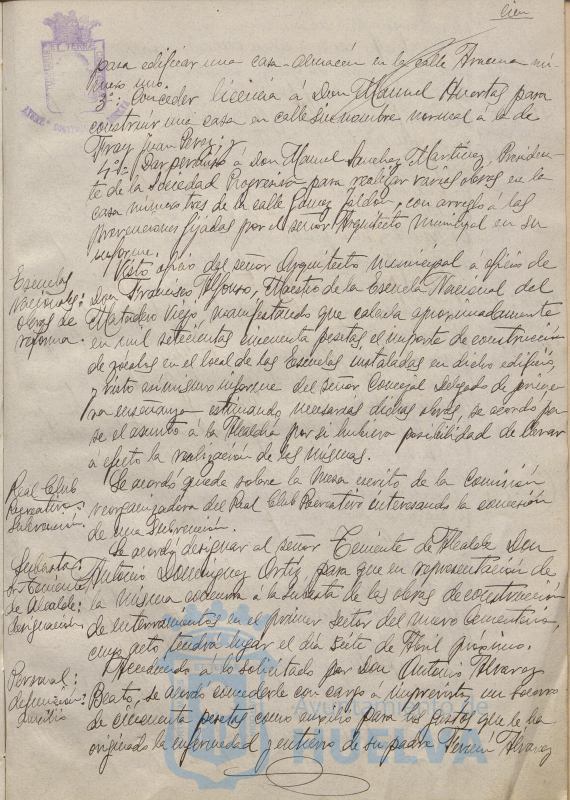 cien
para edificar una casa-almacén en la calle Aracena nú-
mero uno.
3º: Conceder licencia á Don Manuel Huertas para
construir una casa en calle sin nombre normal á la de
Fray Juan Perez;
4º: Dar permiso á don Manuel Sanchez Martinez, Presiden-
te de la Sociedad Progresiva para realizar varias obras en la
casa número tres de la calle Gomez Jaldón, con arreglo á las
prevenciones fijadas por el señor Arquitecto Municipal en su
informe.
Escuelas
Nacionales:
obras de
reforma.
Visto oficio del señor Arquitecto municipal á oficio de
Don Francisco Alfonso, Maestro de la Escuela Nacional del
Matadero Viejo manifestando que calcula aproximadamente
en mil setecientas cincuenta pesetas, el importe de construcción
de zócalos en el local de las Escuelas instaladas en dicho edificio,
y visto asimismo informe del señor Concejal delegado de prime-
ra enseñanza estimando necesarias dichas obras, se acordó pa-
se el asunto á la Alcaldía por si hubiera posibilidad de llevar
á efecto la realización de las mismas.
Real Club
Recreativo:
Subvención.
Se acordó quede sobre la Mesa escrito de la Comisión
reorganizadora del Real Club Recreativo interesando la concesión
de una Subvención.
Subasta:
Sr. Teniente
de Alcalde:
designación.
Se acordó designar al señor Teniente de Alcalde Don
Antonio Dominguez Ortiz para que en representación de
la misma concurra á la subasta de las obras de construcción
de enterramientos en el primer sector del nuevo Cementerio,
cuyo acto tendrá lugar el día siete de Abril próximo.
Personal:
defunción:
Auxilio
Accediendo á lo solicitado por Don Antonio Alvarez
Beato, se acordó concederle con cargo á Imprevistos un socorro
de cincuenta pesetas como auxilio para los gastos que le ha
originado la enfermedad y entierro de su padre Alvarez
Ayuntamiento de
HUELVA